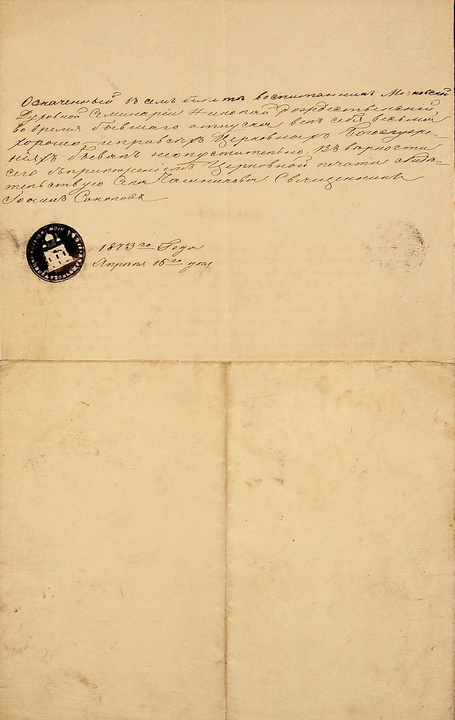 Означенный въ семъ билетѣ воспитанникъ Московской
Духовной Семинаріи Николай Рождественскій
во время бывшаго отпуска велъ себя весьма
хорошо и при всѣхъ Церковныхъ Богослуже-
ніяхъ бывалъ неопустительно. Въ вѣрности
сего съ приложеніемъ Церковной печати свидѣ-
тельствую Села Священникъ
Іоаннъ Соколовъ
1873го Года
Апрѣля 16го дня